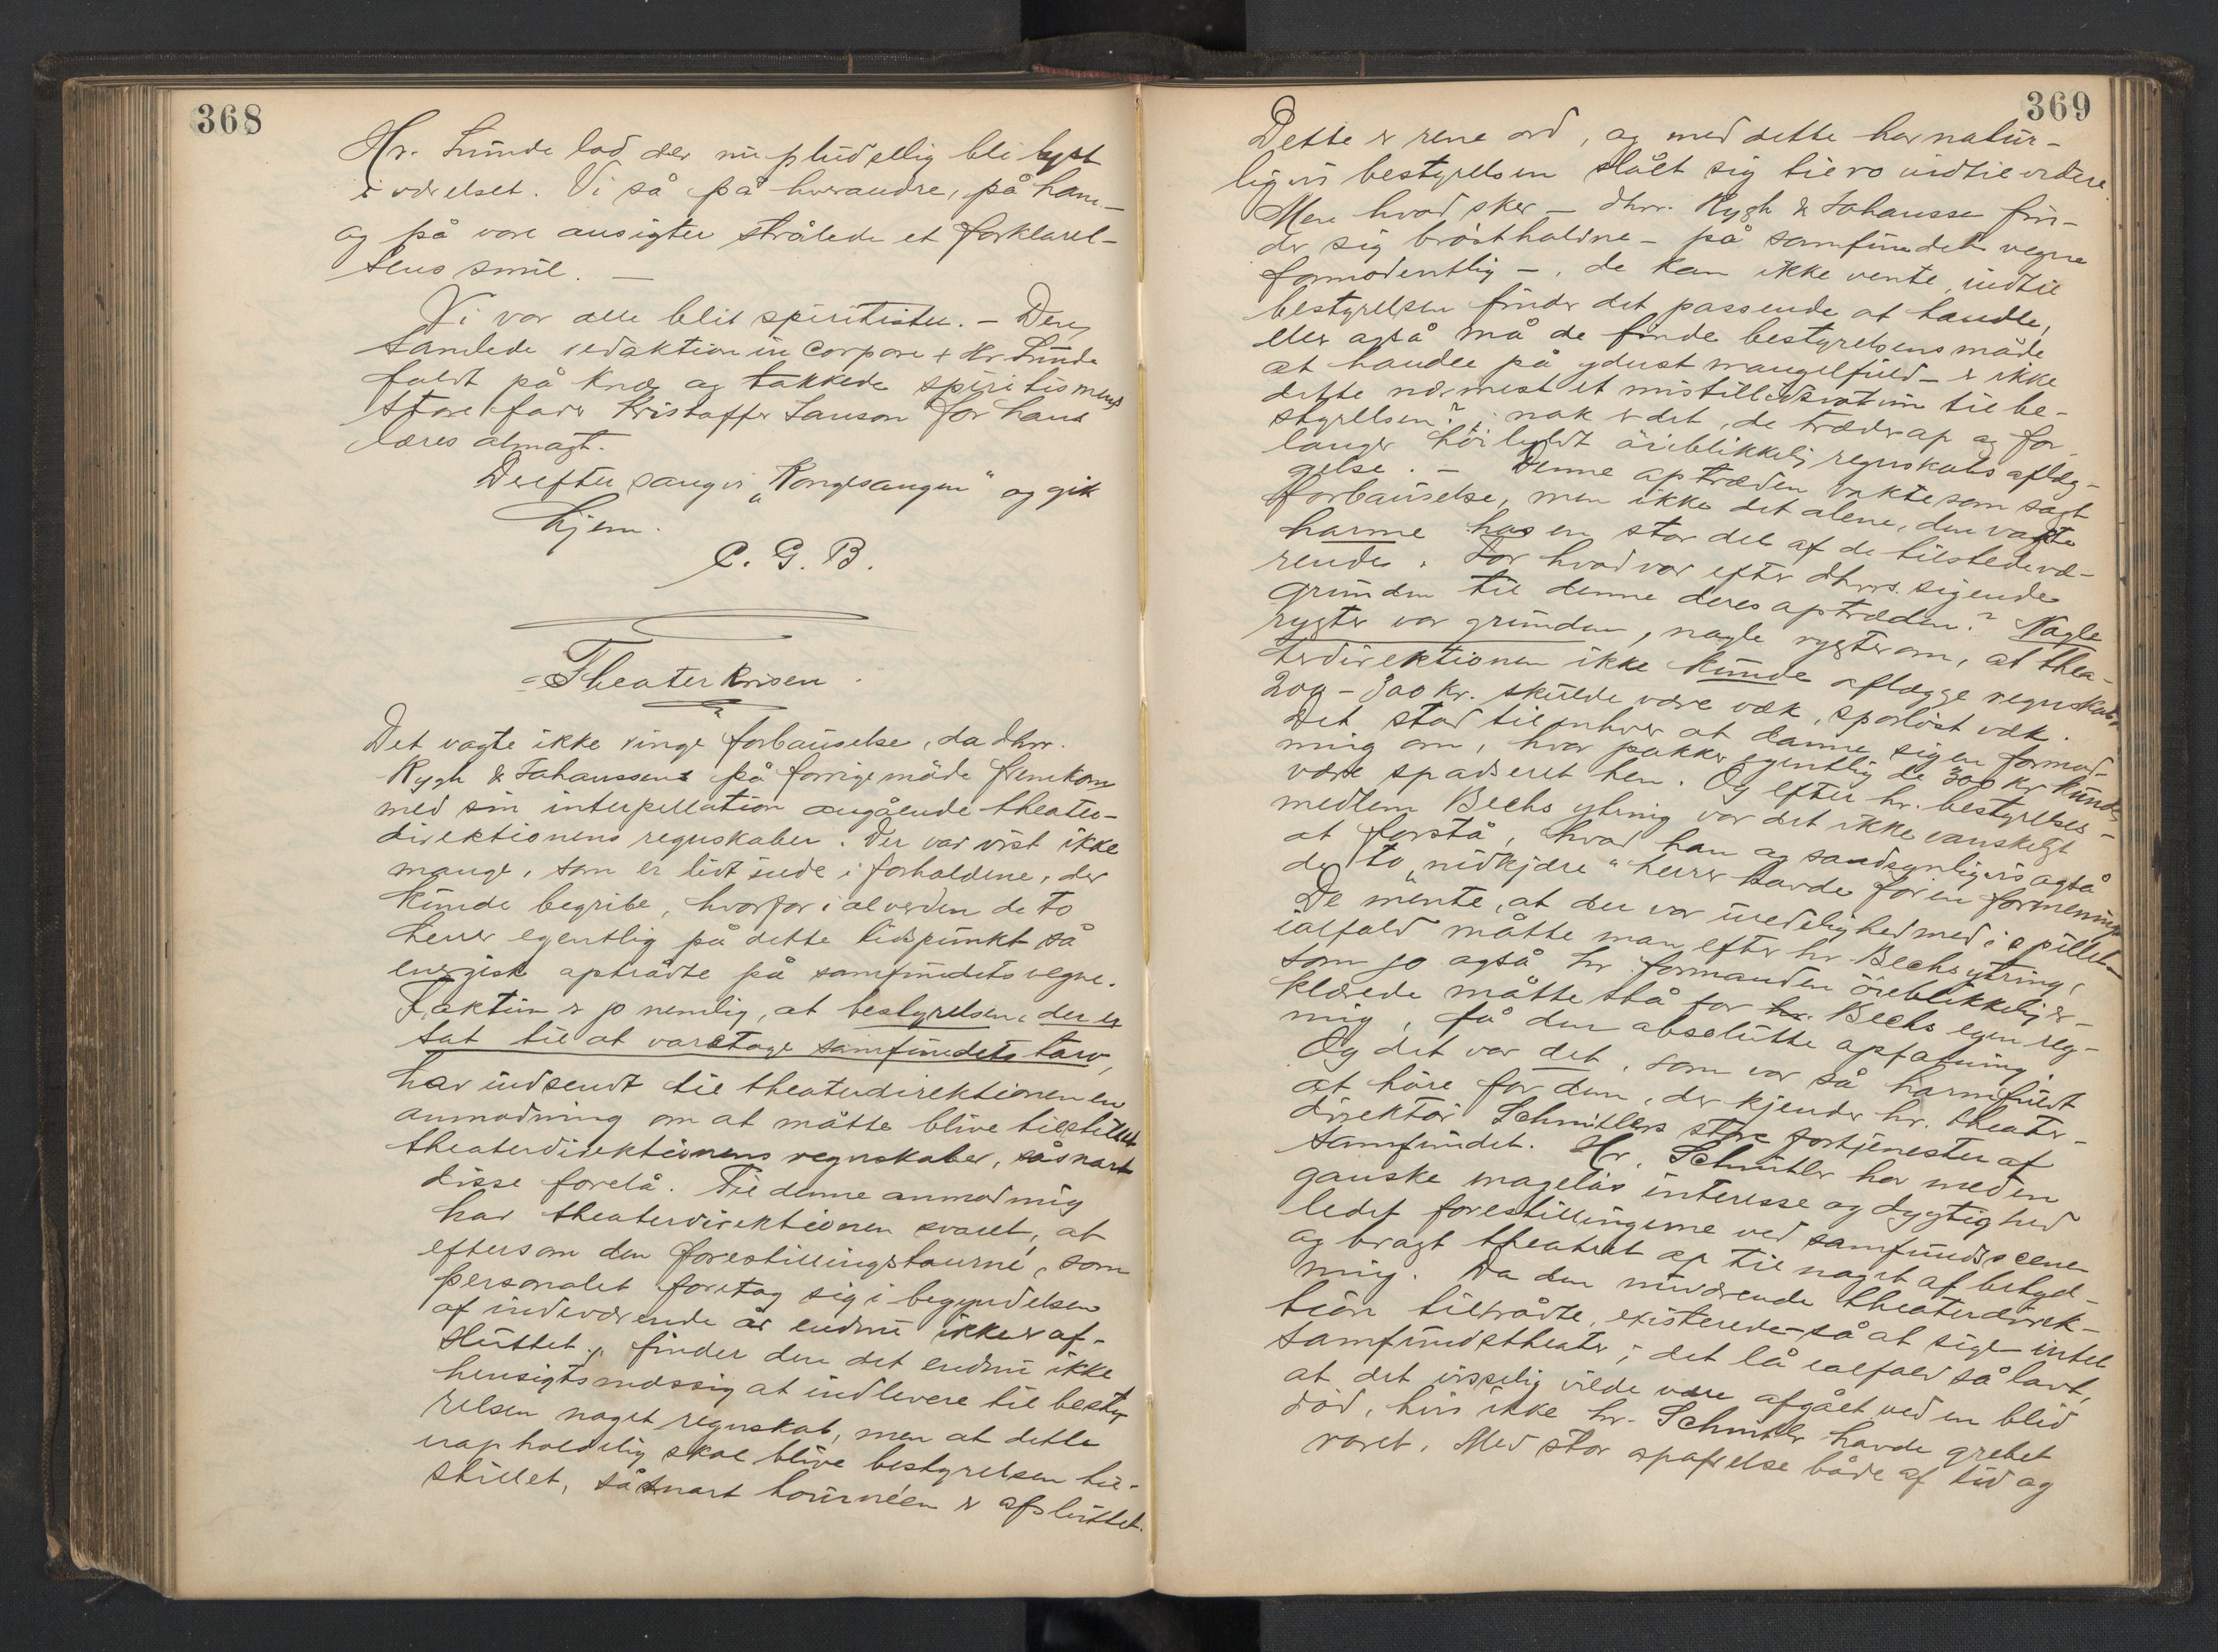 368
Hr. Lunde lod der nu pludselig bli lyst
i værelset. Vi så på hverandre, på ham –
og på vore ansigter strålede et forklarel-
sens smil. –
Vi var alle blit spiritister. – Den
samlede redaktion in corpore + Hr. Lunde
faldt på knæ og takkede spiritismens
store fader Kristoffer Janson for hans
læres almagt.
Derefter sang vi „Kongesangen“ og gik
hjem.
C. G. B.
Theaterkrisen.
Det vagte ikke ringe forbauselse, da dhrr.
Rygh & Johanssens på forrige møde fremkom
med sin interpellation angående theater-
direktionens regnskaber. Der var vist ikke
mange, som er lidt inde i forholdene, der
kunde begribe, hvorfor i alverden de to
herrer egentlig på dette tidspunkt så
energisk optrådte på samfundets vegne.
Faktum er jo nemlig, at bestyrelsen, der er
sat til at varetage samfundets tarv,
har indsendt til theaterdirektionen en
anmodning om at måtte blive tilstillet
theaterdirektionens regnskaber, såsnart
disse forelå. Til denne anmodning
har theaterdirektionen svaret, at
eftersom den forestillingstourné, som
personalet foretog sig i begyndelsen
af indeværende år endnu ikke er af-
sluttet, finder den det endnu ikke
hensigtsmæssig at indlevere til besty-
relsen noget regnskab, men at dette
uopholdelig skal blive bestyrelsen til-
stillet, såsnart tournéen er afsluttet.
369
Dette er rene ord, og med dette har natur-
ligvis bestyrelsen slået sig til ro indtil videre.
Men hvad sker – dhrr. Rygh & Johanssen fin-
der sig brøstholdne – på samfundets vegne
formodentlig –, de kan ikke vente, indtil
bestyrelsen finder det passende at handle,
eller også må de finde bestyrelsens måde
at handle på yderst mangelfuld – er ikke
dette nærmest et mistillidsvotum til be-
styrelsen? ; nok er det, de træder op og for-
langer høilydt øieblikkelig regnskabsaflæg-
gelse. – Denne optræden vakte som sagt
forbauselse, men ikke det alene, den vagte
harme hos en stor del af de tilstedevæ-
rende. For hvad var efter dhrrs. sigende
grunden til denne deres optræden? Nogle
rygter var grunden, nogle rygter om, at thea-
terdirektionen ikke kunde aflægge regnskab.
200 – 300 kr. skulde være væk, sporløst væk.
Det stod til enhver at danne sig en formod-
ning om, hvor pokker egentlig de 300 kr. kunde
være spadseret hen. Og efter hr. bestyrelses-
medlem Bechs ytring var det ikke vanskeligt
at forstå, hvad han og sandsynligvis også
de to „nidkjære“ herrer havde for en formening.
De mente, at der var uredelighed med i spillet –
ialfald måtte man efter hr. Bechs ytring,
som jo også hr. formanden øieblikkelig er-
klærede måtte stå for hr. Bechs egen reg-
ning, få den absolutte opfatning.
Og det var det, som var så harmfuldt
at høre for dem, der kjender hr. theater-
direktør Schmitlers store fortjenester af
samfundet. Hr. Schmitler har med en
ganske mageløs interesse og dygtighed
ledet forestillingerne ved samfundsscenen
og bragt theatret op til noget af betyd-
ning. Da den nuværende theaterdirek-
tion tiltrådte, existerede så at sige intet
samfundstheater; det lå ialfald så lavt,
at det visselig vilde være afgået ved en blid
død, hvis ikke hr. Schmitler havde grebet
roret. Med stor opofrelse både af tid og